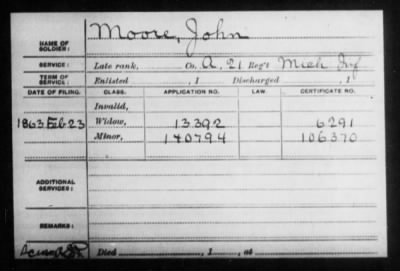 NAME OF SOLDIER: Moore, John
SERVICE: Late rank, Co. A, 21 Reg't Mich Inf
TERM OF SERVICE: Enlisted , 1 Discharged , 1
DATE OF FILING. CLASS. APPLICATION NO. LAW. CERTIFICATE NO.
Invalid,
1863 Feb 23 Widow, 13392 6291
Minor, 140794 106370
ADDITIONAL SERVICES:
REMARKS:
Died , 1 , at